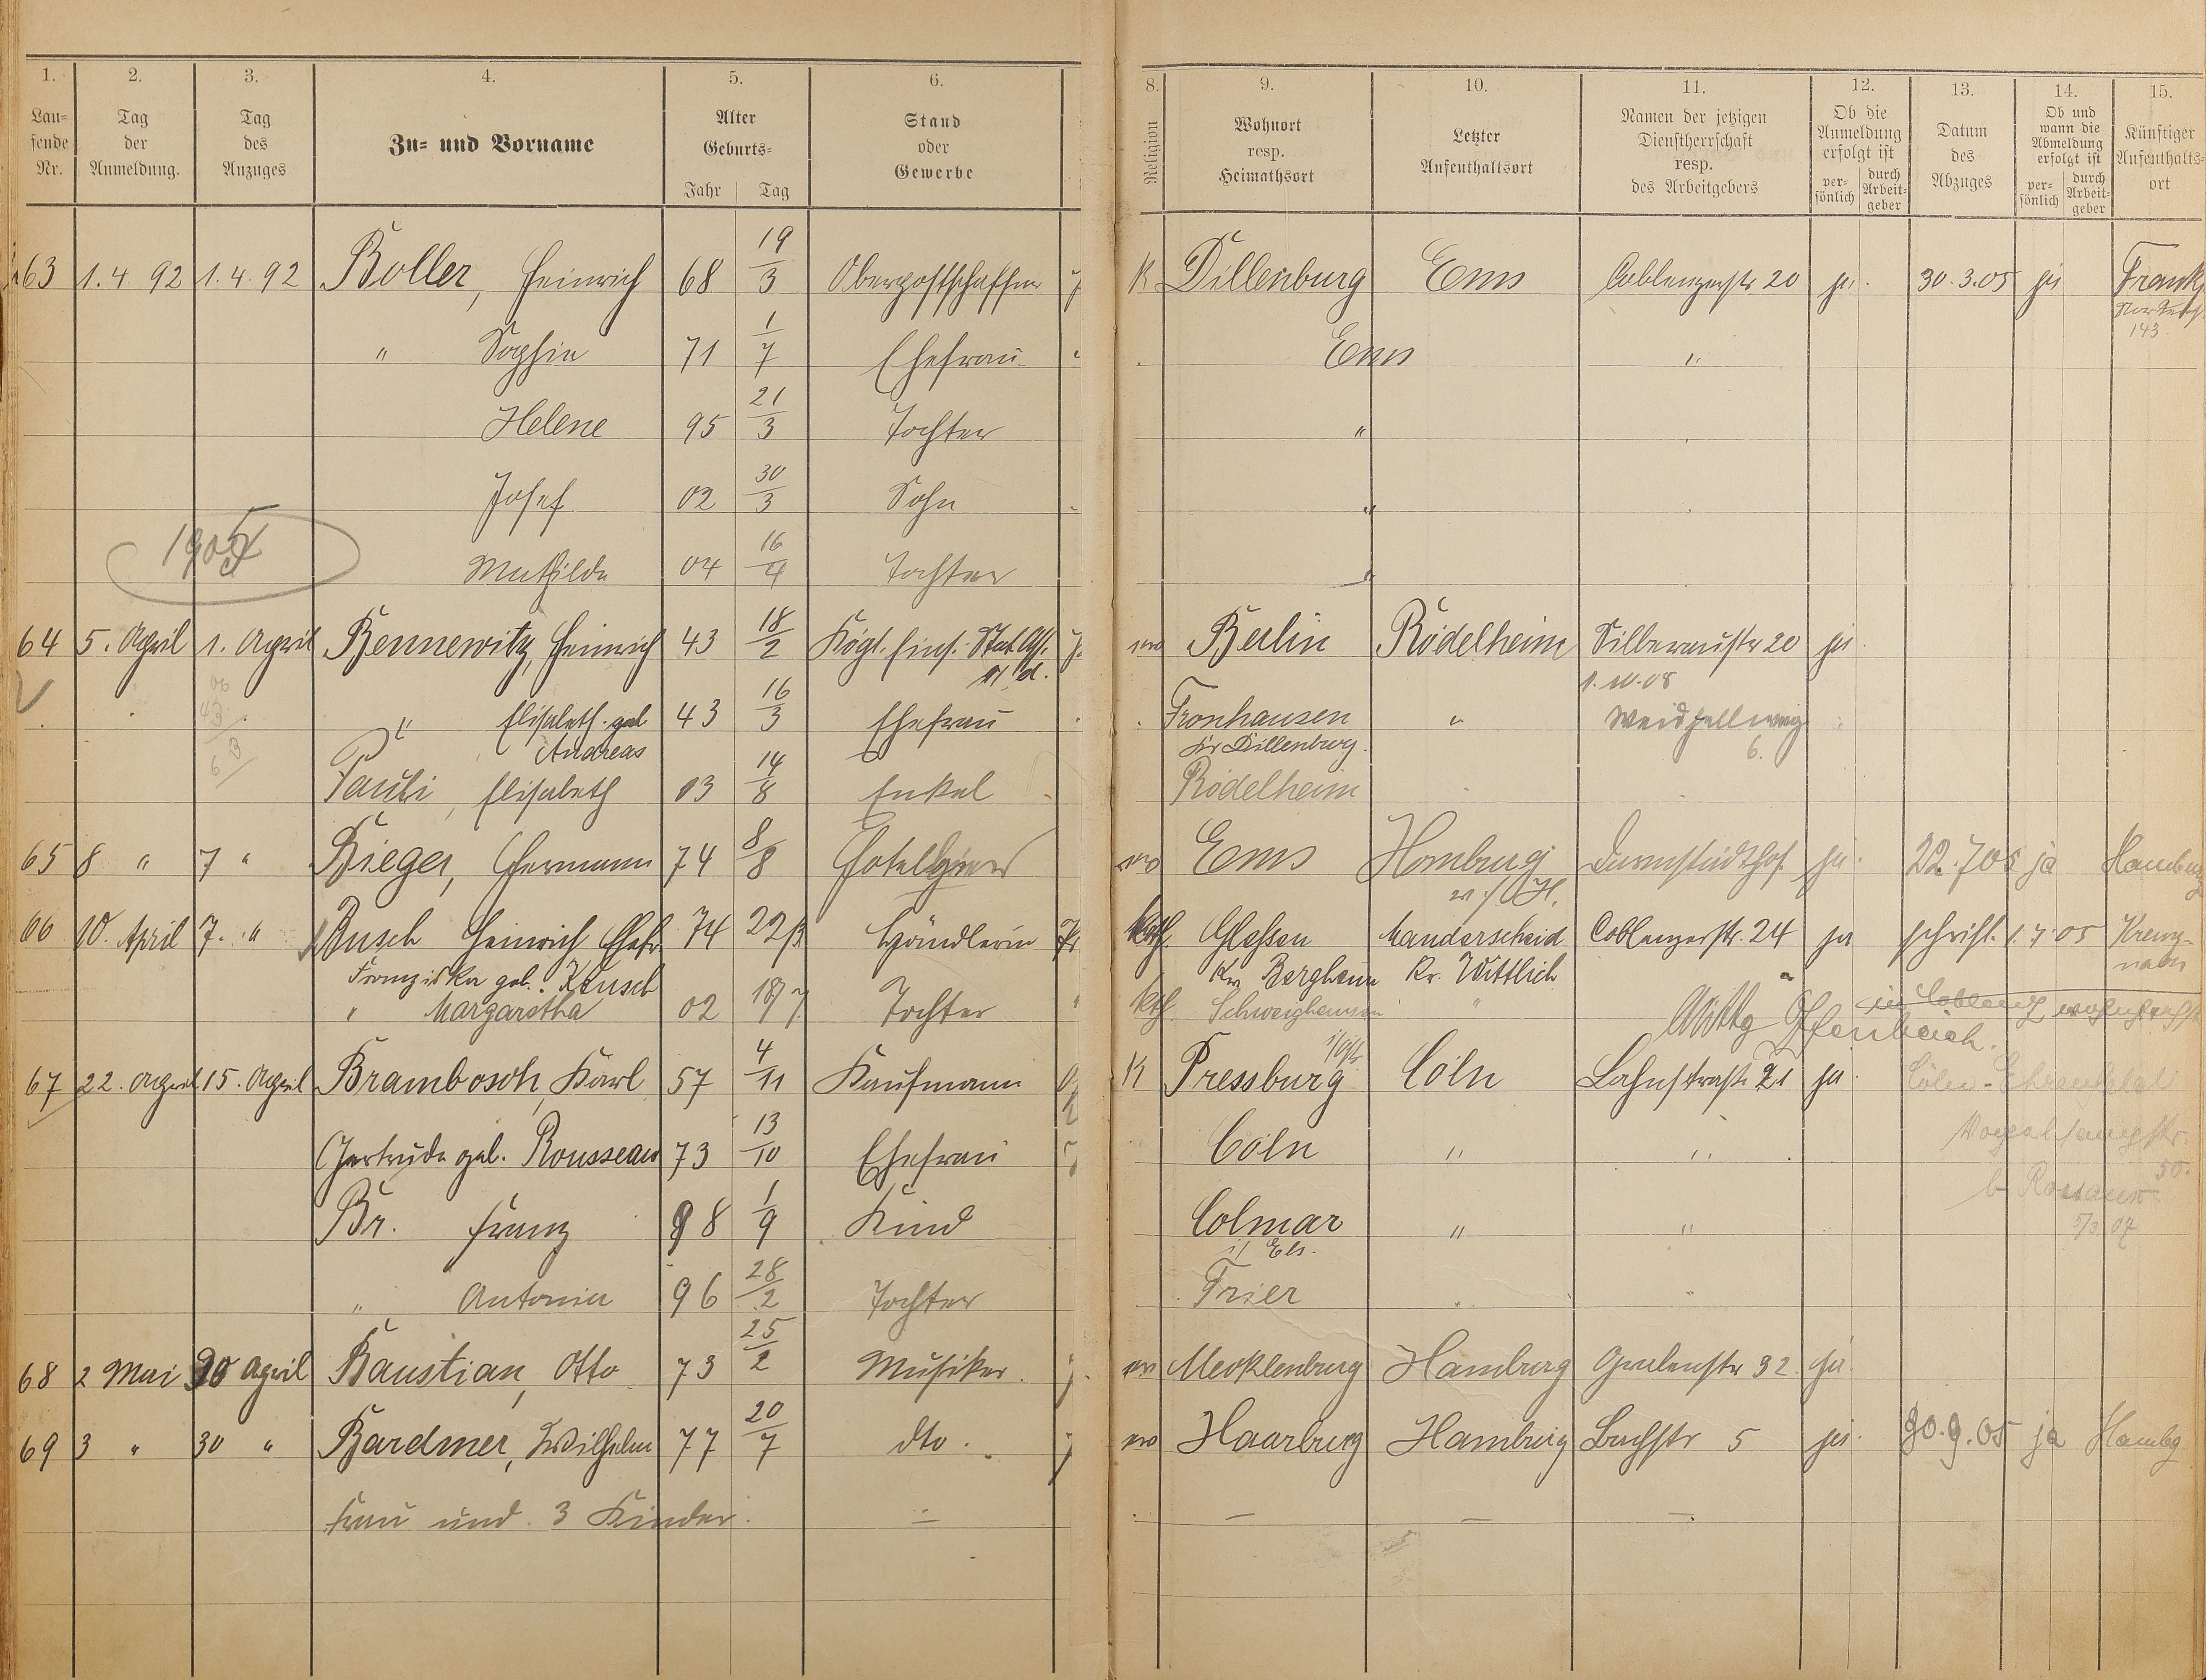 1. 2. 3. 4. 5. 6. 8. 9. 10. 11. 12. 13. 14. 15.
Lau-
fende
Nr.
Tag
der
Anmeldung.
Tag
des
Anzuges
Zu- und Vorname
Alter
Geburts-
Jahr Tag
Stand
oder
Gewerbe
Religion
Wohnort
resp.
Heimathsort
Letzter
Aufenthaltsort
Namen der jetzigen
Dienstherrschaft
resp.
des Arbeitgebers
Ob die
Anmeldung
erfolgt ist
per-
sönlich
durch
Arbeit-
geber
Datum
des
Abzuges
Ob und
wann die
Abmeldung
erfolgt ist
per-
sönlich
durch
Arbeit-
geber
Künftiger
Aufenthalts-
ort
63 1.4.92 1.4.92 Boller, Heinrich 68 19/3 Oberpostschaffner K Dillenburg Ems Coblenzerstr 20 ja. 30.3.05 ja Frankf.
143
" Sophie 71 1/7 Ehefrau Ems "
Helene 95 21/3 Tochter "
Josef 02 30/3 Sohn "
1905
Mathilde 04 16/4 Tochter "
64 5. April 1. April Bennewitz, Heinrich 43 18/2 Kögl. Eins. Stat. Ass. a. d. Berlin Rödelheim Silberaustr 20 ja.
1.10.08
" Elisabeth geb. 43 16/3 Ehefrau Fronhausen " Weidhellweg
Andreas Kr Dillenburg. 6.
Pauli, Elisabeth 03 14/8 Enkel Rödelheim
65 8 " 7 " Bieger, Hermann 74 8/8 Hoteldiener Ems Homburg Darmstädthof ja. 22.7.05 ja Hamburg
v/H.
66 10. April 7. " Busch Heinrich Ehefr. 74 22/3 Händlerin kath. Glessen Manderscheid Coblenzerstr. 24 ja schriftl. 1.7.05 Kreuz-
nach
Franziska geb. Krusch Kr. Bergheim Kr. Wittlich
" Margaretha 02 18/7 Tochter kath. Schweighausen "
in Coblenz
67 22. April 15. April Brambosch, Karl 57 4/11 Kaufmann K Pressburg Cöln Lahnstraße 21 ja. Cöln-Ehrenfeld
Gertrude geb. Rousseau 73 13/10 Ehefrau Cöln " " Vogelsangstr.
50.
Br. Franz 98 1/9 Kind Colmar " "
i/ Els. 5/3.07
" Antonia 96 28/2 Tochter Trier
68 2 Mai 30 April Baustian, Otto 73 25/2 Musiker. Mecklenburg Hamburg Grabenstr 32 ja.
69 3 " 30 " Bardmer, Wilhelm 77 20/7 dto. Haarburg Hamburg Bachstr 5 ja. 30.9.05 ja Hambg
Frau und 3 Kinder.